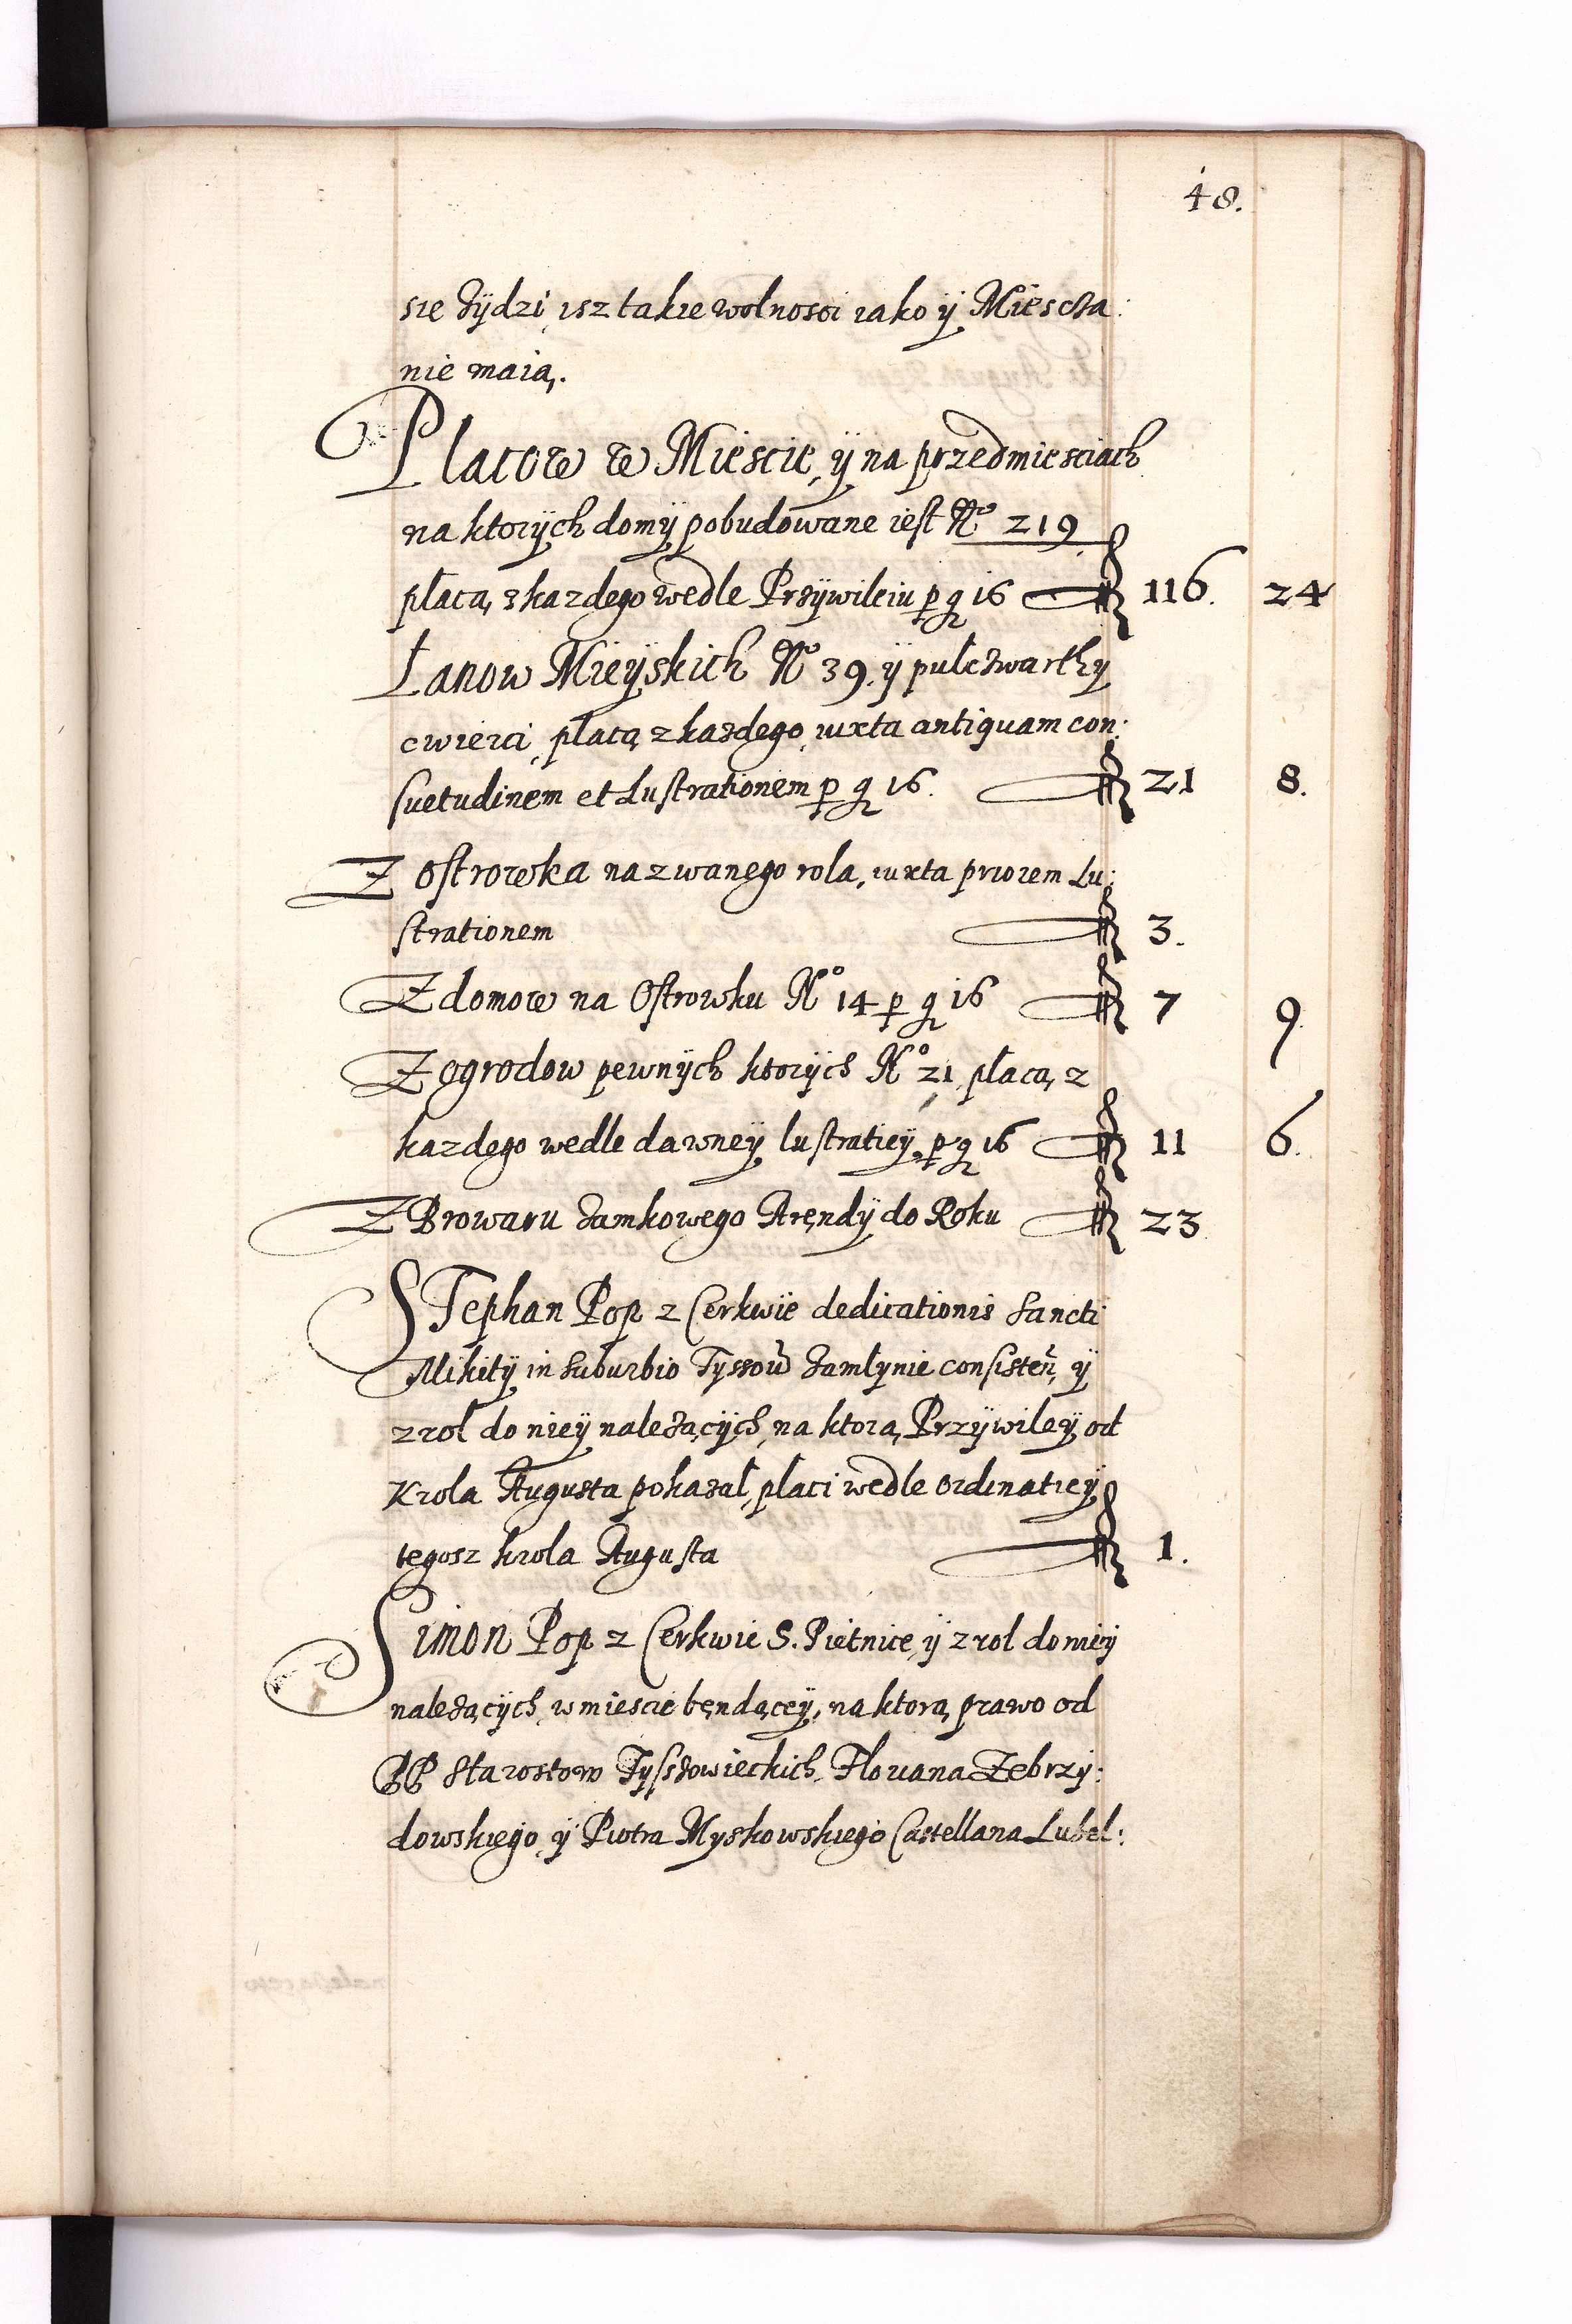 48.
się Zÿdzi, isz takie wolnosci iako ÿ Miescza:
nie maią.
Placow w Miescie, ÿ na przedmiesciach
na ktorÿch domÿ pobudowane iest No 219
płacą z kazdego wedle Przÿwileiu p g 16 116. 24
Łanow Mieÿskich No 39. ÿ pulczwarthy
cwierci, płacą z kazdego, iuxta antiquam con:
suetudinem et Lustrationem p g 16. 21 8.
Z Ostrowka nazwanego rola, iuxta priorem Lu:
strationem 3.
Z domow na Ostrowku No 14 p g 16 7 9
Z ogrodow pewnÿch ktorÿch No 21, płacą z
kazdego wedle dawneÿ lustratieÿ p g 16 11 6.
Z Browaru Zamkowego Arendÿ do Roku 23
Stephan Pop z Cerkwie dedicationis Sancti
Mikitÿ in suburbio Tyssow Zamłynie consisten, ÿ
z rol do nieÿ nalezącÿch, na ktorą Przÿwileÿ od
Krola Augusta pokazał, płaci wedle ordinatieÿ
tegosz krola Augusta 1.
Simon Pop z Cerkwie S. Piętnice, ÿ z rol do nieÿ
nalezącÿch, w miescie będąceÿ, na ktorą prawo od
PP Starostow Tyszowieckich, Floriana Zebrzy:
dowskiego, ÿ Piotra Myskowskiego Castellana Lubel: